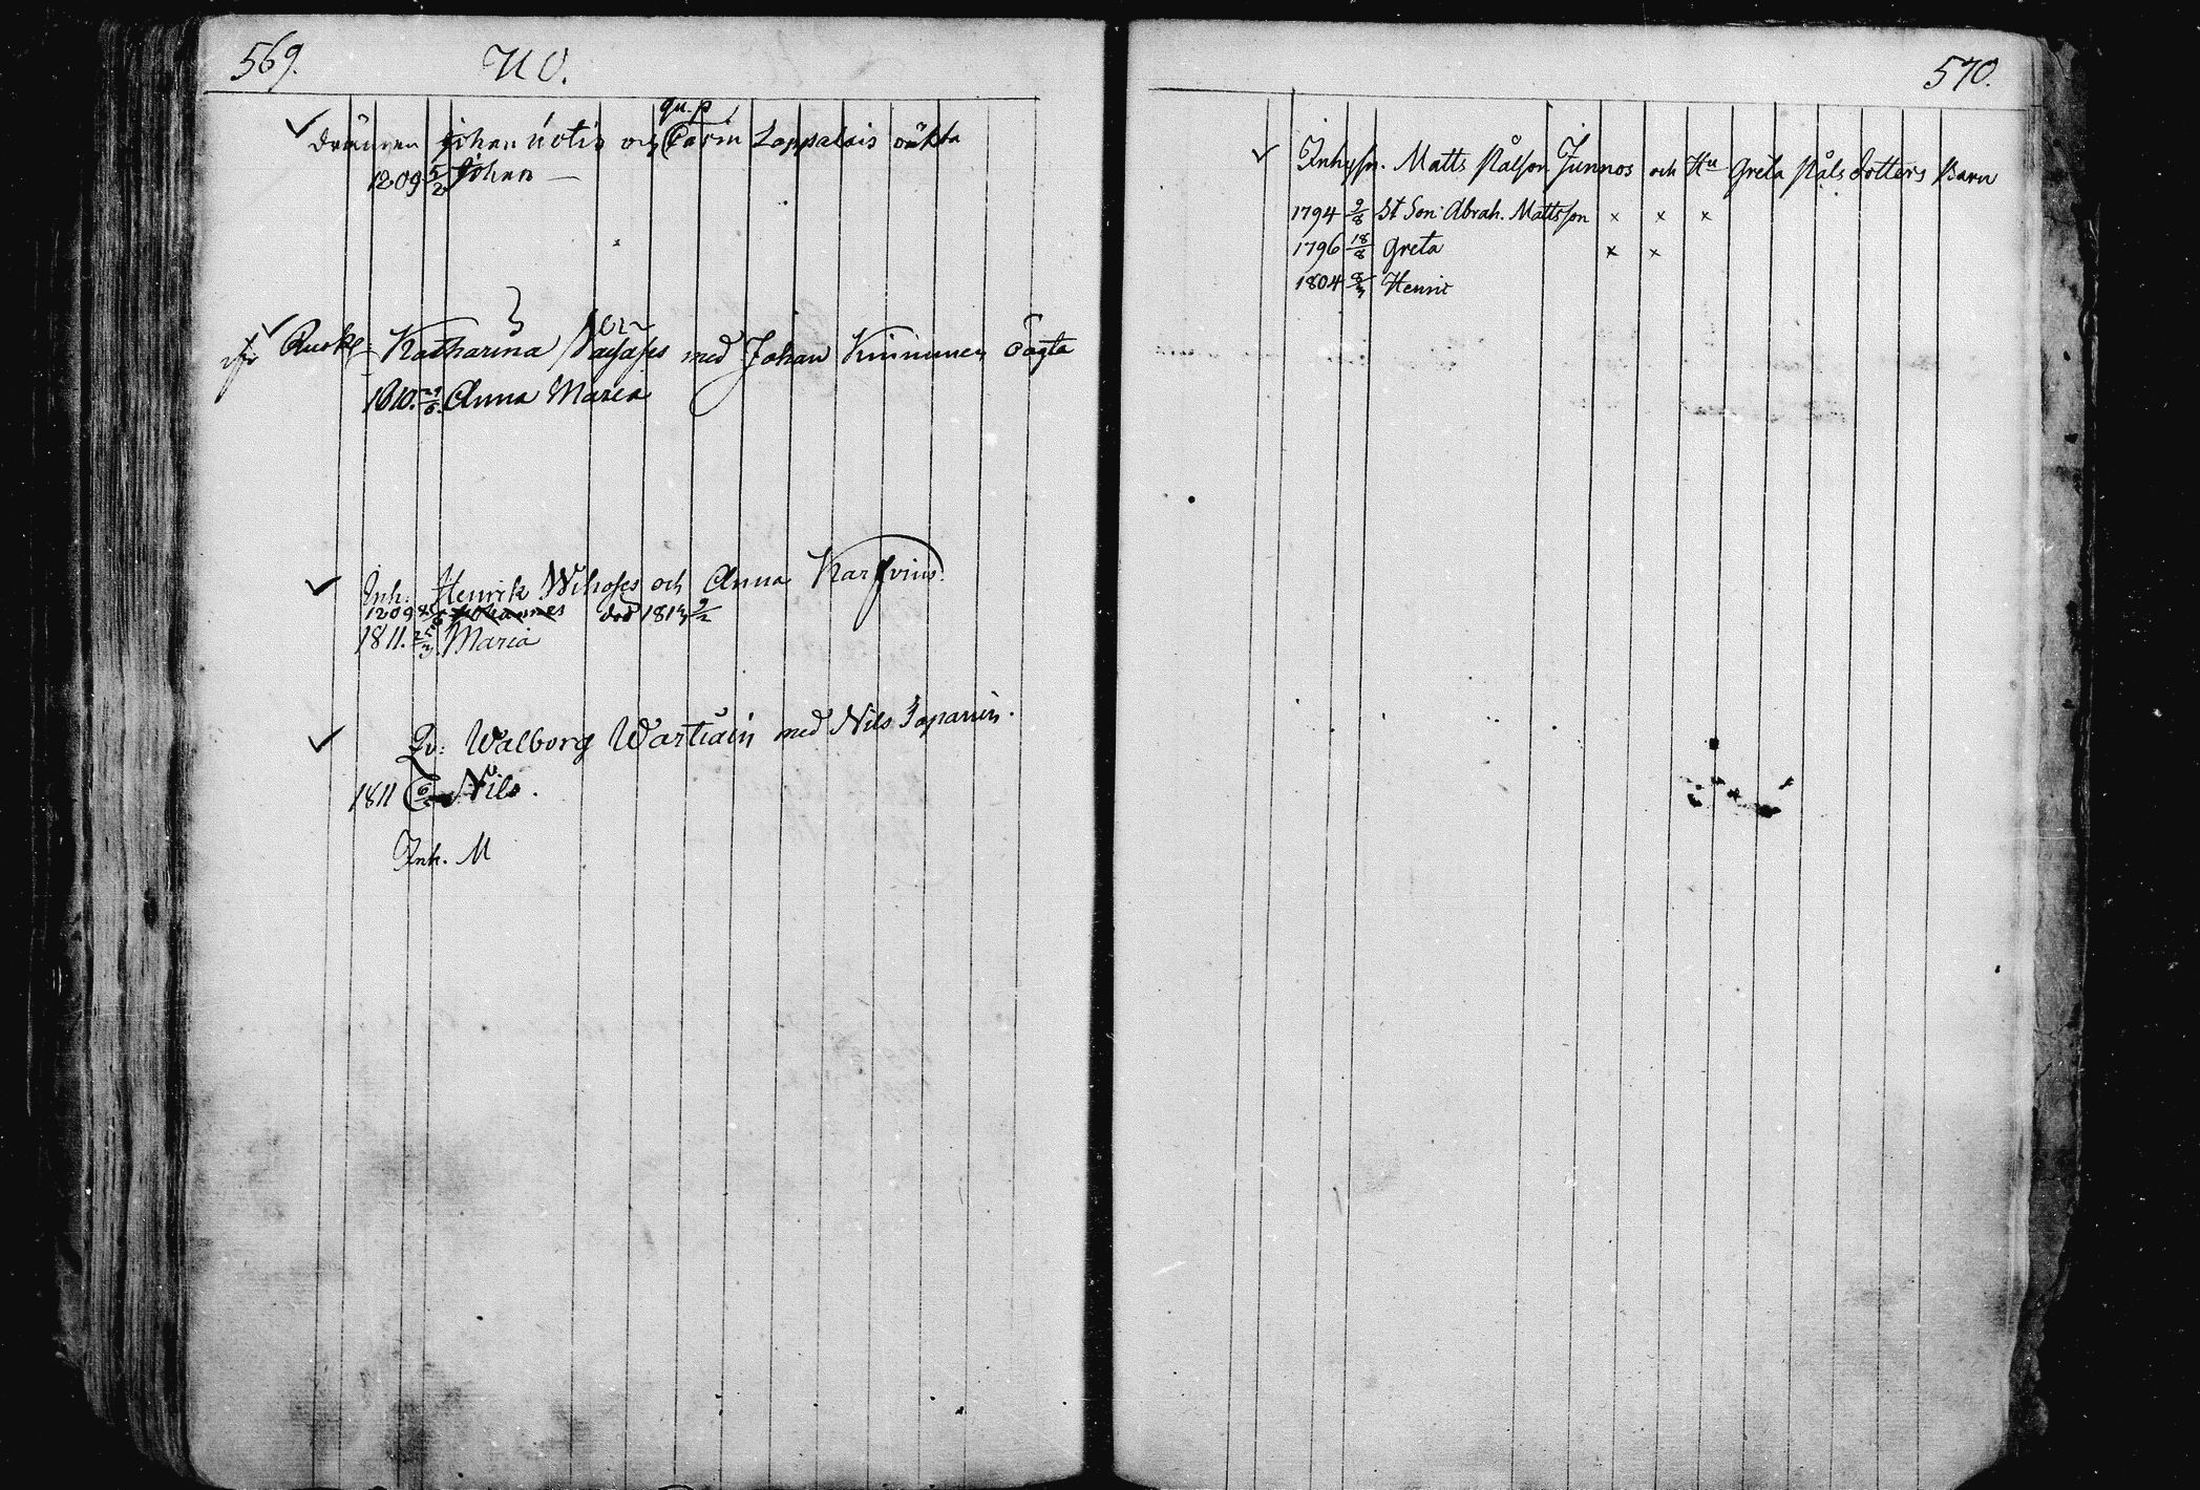 569.
N O.
qu. p
Drängen Johan Notis och Carin Lappalais oäkta
1809 5/2 Johan —
Katharina med Johan Kinnunen oägta
1810. Anna Maria
Inh: Henrik Wihoſes och Anna
1809 Johannes död 1813 9/2
1811. 25/3 Maria
Qv: Walborg Wartiain med Nils Japanin.
1811 Nils.
Inh. M
570.
Inhyſn. Matts Pålſon Junnos och Hu Greta Påls dotters Barn
1794 9/8 St Son Abrah. Mattſſon x x x
1796 18/8 Greta x x
1804 Henric